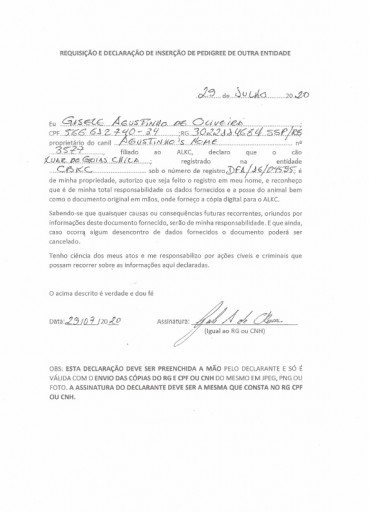 REQUISIÇÃO E DECLARAÇÃO DE INSERÇÃO DE PEDIGREE DE OUTRA ENTIDADE
29 de JULHO 2020
Eu GISELE AGUSTINHO DE OLIVEIRA
CPF 566612740-34 ;RG 3022114684 SSP/RS
proprietário do canil AGUSTINHO'S HOME nº
3577, filiado ao ALKC, declaro que o cão
GOIAS registrado na entidade
CBKC sob o número de registro, é
de minha propriedade, autorizo que seja feito o registro em meu nome, e reconheço
que é de minha total responsabilidade os dados fornecidos e a posse do animal bem
como o documento original em mãos, onde forneço a cópia digital para o ALKC.
Sabendo-se que quaisquer causas ou consequências futuras recorrentes, oriundos por
informações deste documento fornecido, serão de minha responsabilidade. E que ainda,
caso ocorra algum desencontro de dados fornecidos o documento poderá ser
cancelado.
Tenho ciência dos meus atos e me responsabilizo por ações cíveis e criminais que
possam recorrer sobre as informações aqui declaradas.
O acima descrito é verdade e dou fé
Data: 29/07/2020 Assinatura:
(Igual ao RG ou CNH)
OBS: ESTA DECLARAÇÃO DEVE SER PREENCHIDA A MÃO PELO DECLARANTE E SÓ É
VÁLIDA COM O ENVIO DAS CÓPIAS DO RG E CPF OU CNH DO MESMO EM JPEG, PNG OU
FOTO. A ASSINATURA DO DECLARANTE DEVE SER A MESMA QUE CONSTA NO RG CPF
OU CNH.